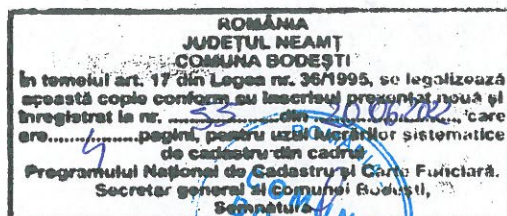 ROMÂNIA
JUDEȚUL NEAMȚ
COMUNA BODEȘTI
În temeiul art. 17 din Legea nr. 36/1995, se legalizează
această copie conform cu înscrisul prezentat nouă și
înregistrat la nr. 55 din 20.06.202, care
are 4 pagini, pentru uzul lucrărilor sistematice
de cadastru din cadrul
Programului Național de Cadastru și Carte Funciară.
Secretar general al Comunei Bodești,
Semnătura